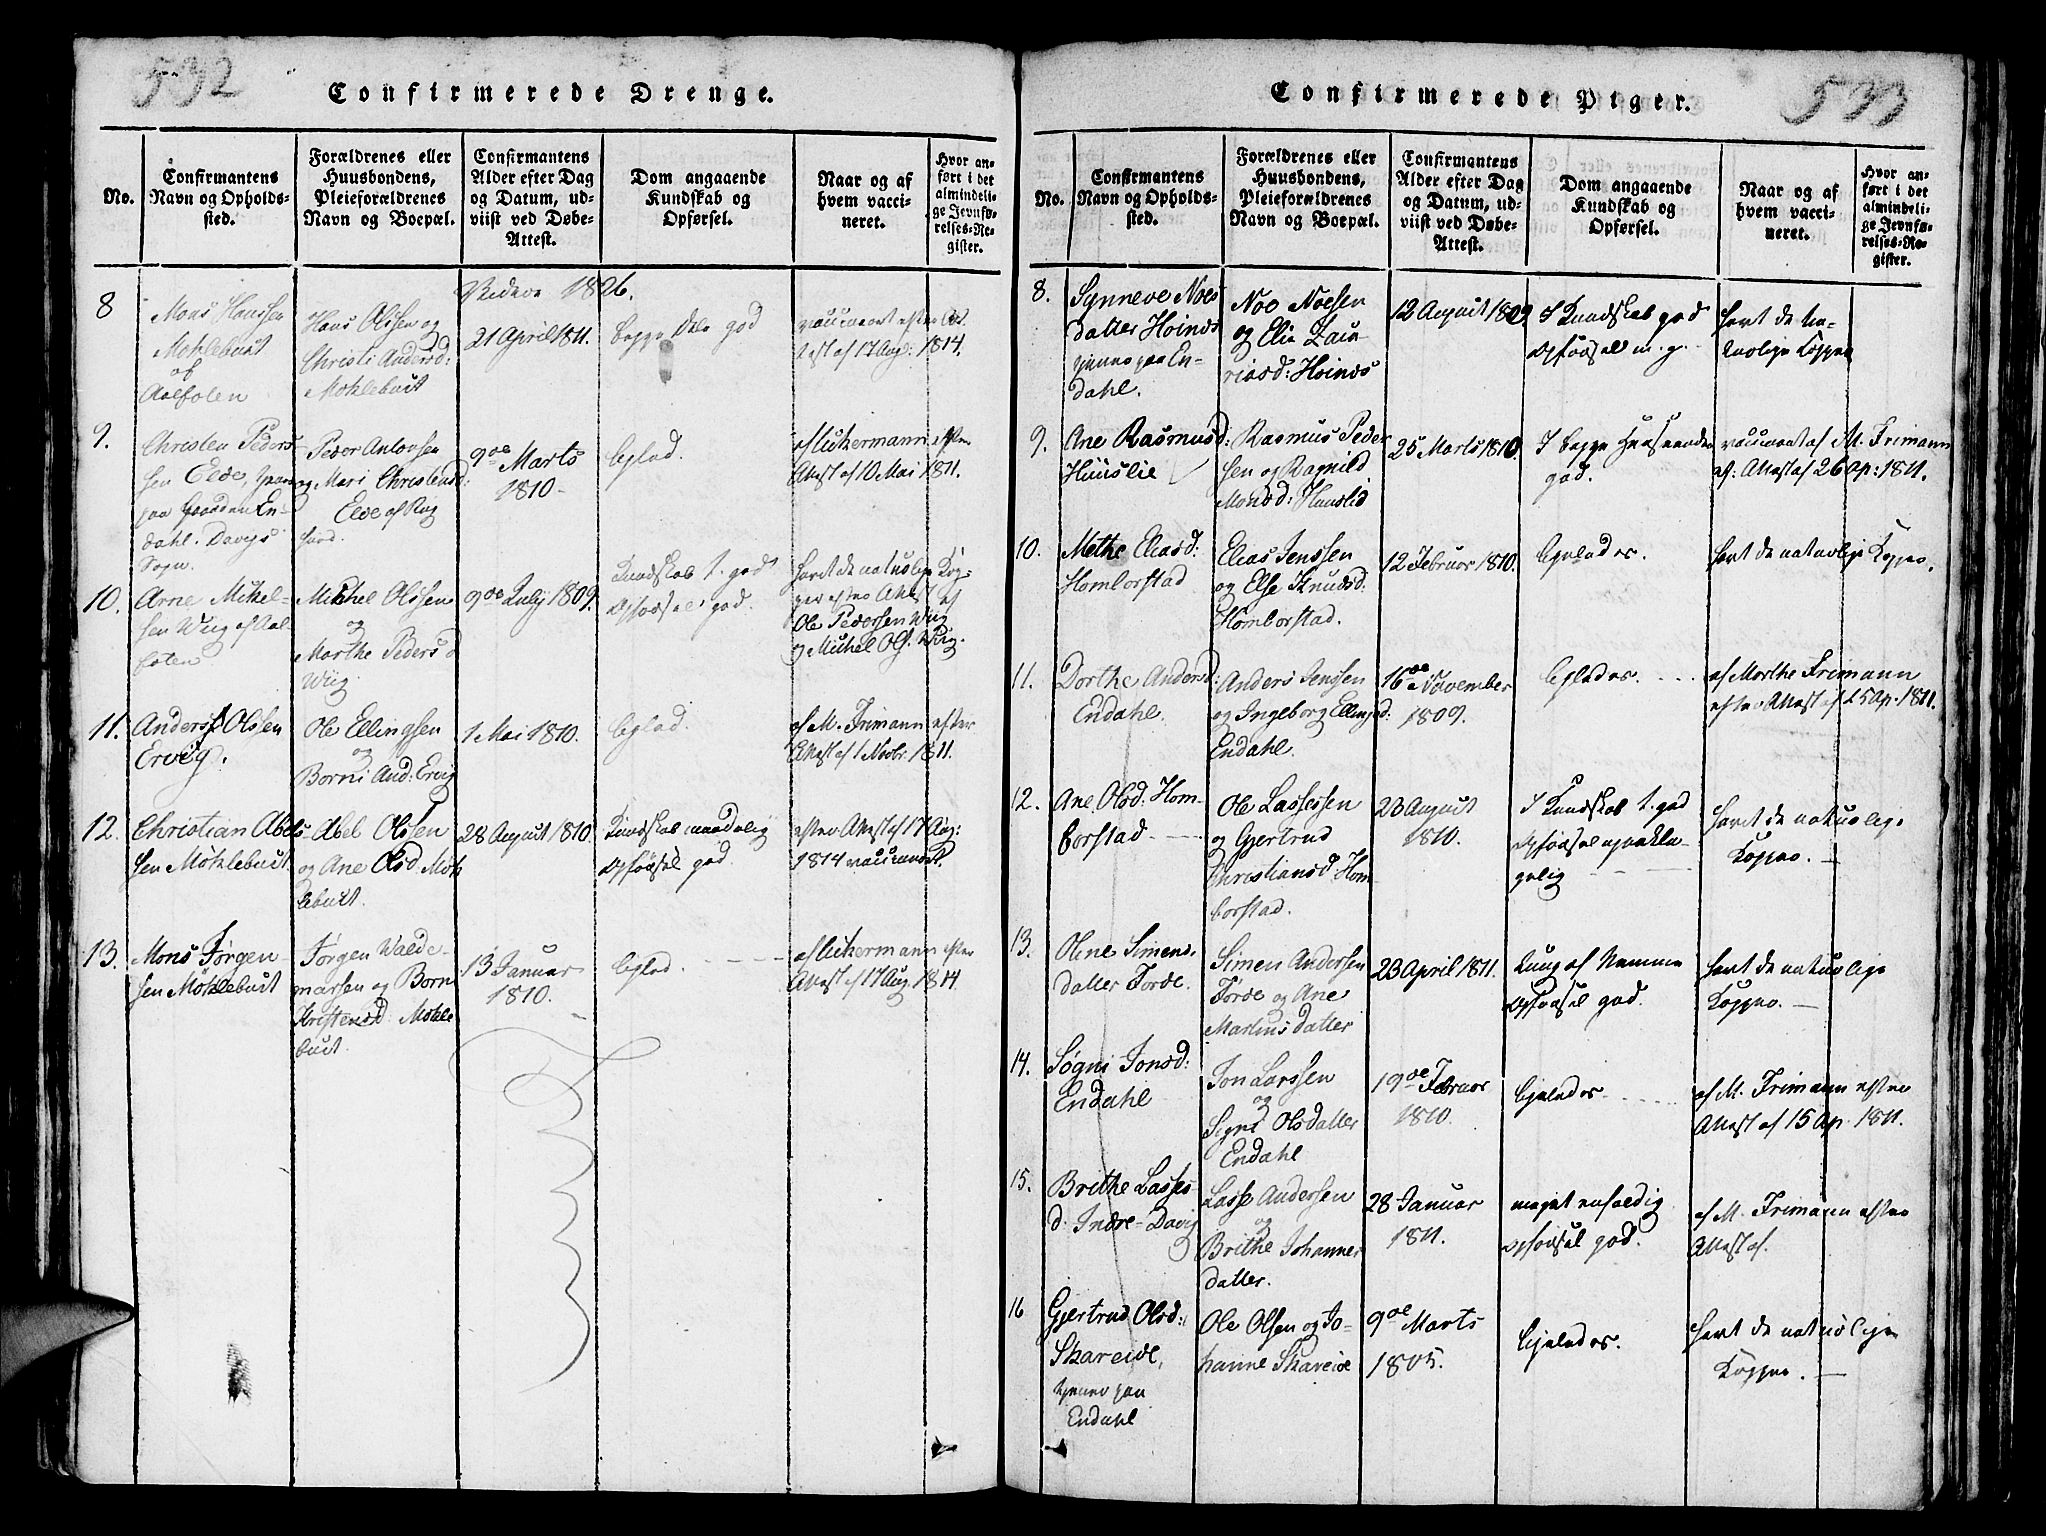 532
Confirmerede Drenge.
No.
Confirmantens
Navn og Opholds-
sted.
Forældrenes eller
Huusbondens,
Pleieforældrenes
Navn og Boepæl.
Confirmantens
Alder efter Dag
og Datum, ud-
viist ved Døbe-
Attest.
Dom angaaende
Kundskab og
Opførsel.
Naar og af
hvem vacci-
neret.
Hvor an-
ført i det
almindeli-
ge Jevnfø-
relses-Re-
gister.
1826.
8
Mons Hanssen
Møklebust
af
Aalfoten
Hans Olssen og
Christi Andersd:
Møklebust
21 April 1811.
begge Dele god
vaccineret efter At-
test af 17 Aug: 1814.
9.
Christen Peders
sen Elde,
paa Gaarden En-
dahl. Davigs
Sogn.
Peder Antonsen
og Mari Christensd:
Elde af Rug
sund.
9de Marts
1810
ligeled.
af Lukermann efter
Attest af 10 Mai 1811.
10.
Arne Mikel-
sen Wiig af Aal-
foten
Mikhel Olssen
og
Marthe Pedersd
Wiig
9de July 1809.
Kundskab t. god
Opførsel god.
havt de naturlige Kop-
per efter Attest af
Ole Pedersen Wiig
og Mikhel Ols. Wiig.
11.
Anders Olssen
Ervig.
Ole Ellingsen
og
Borni And: Ervig
1 Mai 1810.
ligelad.
af M. Frimann efter
Attest af 1 Novbr. 1811.
12.
Christian Abels
sen Møklebust
Abel Olssen
og Ane Olsd: Møk
lebust.
28 August 1810.
Kundskab maadelig
Opførsel god.
efter Attest af 17 Aug:
1814 vaccineret.
13.
Mons Jørgen-
sen Møklebust
Jørgen Walde-
marsen og Born
Kristensd. Møkle
bust.
13 Januar
1810.
ligelad.
af Lukermann efter
Attest af 17 Aug. 1814.
533
Confirmerede Piger.
No.
Confirmantens
Navn og Opholds-
sted.
Forældrenes eller
Huusbondens,
Pleieforældrenes
Navn og Boepæl.
Confirmantens
Alder efter Dag
og Datum, ud-
viist ved Døbe-
Attest.
Dom angaaende
Kundskab og
Opførsel.
Naar og af
hvem vacci-
neret.
Hvor an-
ført i det
almindeli-
ge Jevnfø-
relses-Re-
gister.
8.
Synneve Noes
datter Hoinæs
tjener paa En-
dahl.
Noe Noesen
og Elie Lau-
ritsd: Hoinæs
12 August 1809
I Kundskab god
Opførsel m. g.
havt de na-
turlige Kopper
9.
Ane Rasmusd:
Huuslie
Rasmus Peder
sen og Ragnild
Monsd: Huuslid
25 Marts 1810.
I begge Henseender
god.
vaccineret af M. Frimann
ef: Attest af 26 Ap: 1811.
10.
Methe Eliasd:
Homborstad
Elias Jenssen
og Else Knudsd:
Homborstad.
12 Februar 1810.
ligeledes.
havt de naturlige Kopper.
11.
Dorthe Andersd:
Endahl.
Anders Jenssen
og Ingeborg Ellingsd:
Endahl.
16de November
1809.
ligeledes.
af Marthe Frimann
efter Attest af 25 Ap. 1811.
12.
Ane Olsd: Hom-
borstad
Ole Lassessen
og Gjertrud
Christiansd. Hom
borstad.
23 August
1810.
I Kundskab t. god
Opførsel upaakla-
gelig
havt de naturlig.
Kopper.
13.
Oline Simens
datter Førde.
Simen Andersen
Førde og Ane
Martinsdatter
23 April 1811.
Kung af Nemme
Opførsel god.
havt de naturlige
Kopper.
14.
Søgni Jonsd:
Endahl
Jon Larssen
og
Signi Olsdatter
Endahl
19de Februar
1810.
ligeledes
af M. Frimann efter
Attest af 15 Ap. 1811.
15.
Brithe Lasses
d. Indre-Davig
Lasse Andersen
og
Brithe Johannes
datter.
28 Januar
1811.
meget enfoldig
Opførsel god.
af M. Frimann efter
Attest af.
16
Gjertrud Olsd:
Skareide,
tjener paa
Endahl
Ole Olsen og Jo-
hanne Skareide
9de Marts
1805.
ligeledes.
havt de naturlige
Kopper.